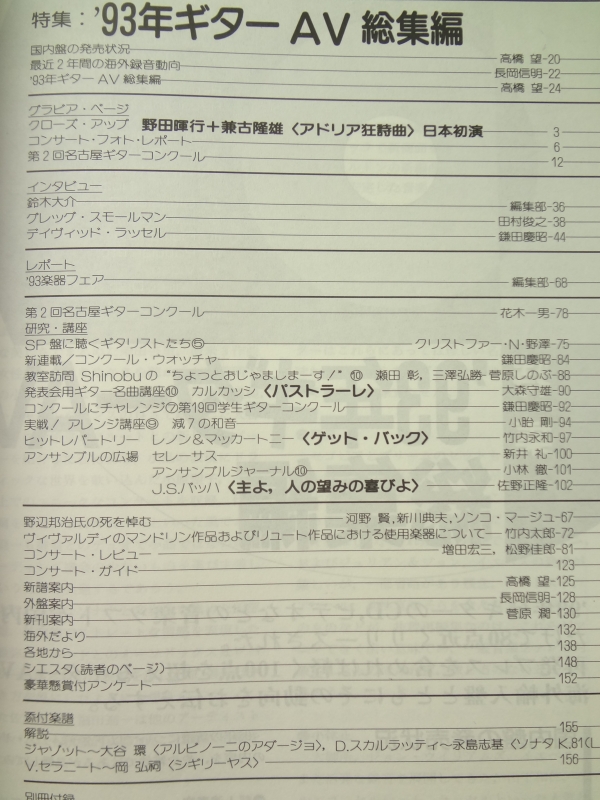 特集：'93年ギター AV 総集編
国内盤の発売状況 高橋 望-20
最近2年間の海外録音動向 長岡信明-22
'93年ギター AV 総集編 高橋 望-24
グラビア・ページ
クローズ・アップ 野田暉行＋兼古隆雄〈アドリア狂詩曲〉日本初演 3
コンサート・フォト・レポート 6
第2回名古屋ギターコンクール 12
インタビュー
鈴木大介 編集部-36
グレッグ・スモールマン 田村俊之-38
デイヴィッド・ラッセル 鎌田慶昭-44
レポート
'93楽器フェア 編集部-68
第2回名古屋ギターコンクール 花木一男-78
研究・講座
SP盤に聴くギタリストたち⑤ クリストファー・N・野澤-75
新連載／コンクール・ウォッチャー 鎌田慶昭-84
教室訪問 Shinobuの “ちょっとおじゃましまーす！” ⑩ 瀬田 彰，三澤弘勝 菅原しのぶ-88
発表会用ギター名曲講座⑩ カルカッシ〈パストラーレ〉 大森守雄-90
コンクールにチャレンジ⑦第19回学生ギターコンクール 鎌田慶昭-92
実戦！アレンジ講座⑨ 減7の和音 小胎 剛-94
ヒットレパートリー レノン＆マッカートニー〈ゲット・バック〉 竹内永和-97
アンサンブルの広場 セレーサス 新井 礼-100
アンサンブルジャーナル⑩ 小林 徹-101
J.S.バッハ〈主よ，人の望みの喜びよ〉 佐野正隆-102
野辺邦治氏の死を悼む 河野 賢，新川典夫，ソンコ・マージュ-67
ヴィヴァルディのマンドリン作品およびリュート作品における使用楽器について 竹内太郎-72
コンサート・レビュー 増田宏三，松野佳郎-81
コンサート・ガイド 123
新譜案内 高橋 望-125
外盤案内 長岡信明-128
新刊案内 菅原 潤-130
海外だより 132
各地から 138
シエスタ（読者のページ） 148
豪華懸賞付アンケート 152
添付楽譜
解説 155
ジャゾット～大谷 環〈アルビノーニのアダージョ〉，D.スカルラッティ～永島志基〈ソナタK.81(L
V.セラニート～岡 弘祠〈シギリーヤス〉 156
別冊付録